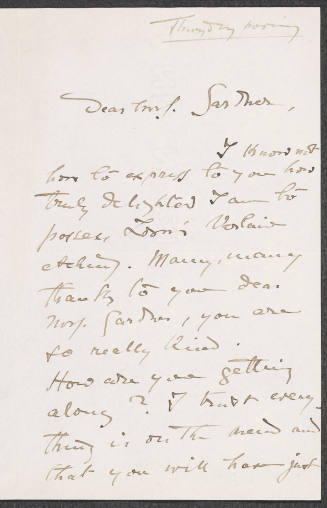 Thursday evening
Dear Mrs. Gardner,
I know not
how to express to you how
truly delighted I am to
possess Zorn's Verlaine
etching. Many, many
thanks to you dear
Mrs. Gardner, you are
so really kind.
How are you getting
along? I trust every-
thing is on the mend and
that you will have just